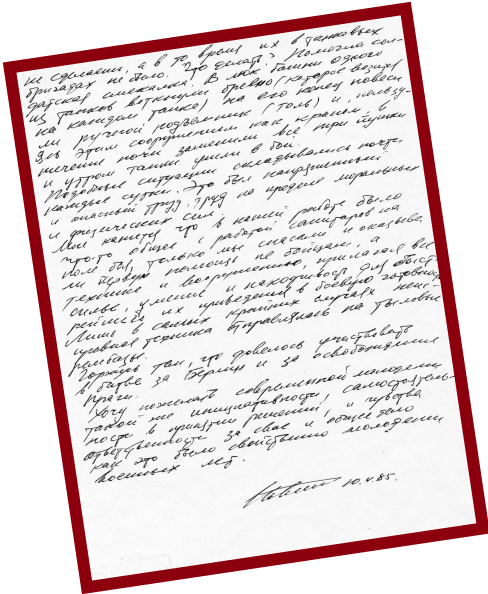 не сделаешь, а в то время их в танковых
бригадах не было. Что делать? Помогла сол-
датская смекалка. В люк башни одного
из танков воткнули бревно (которое возили
на каждом танке) на его конец повеси-
ли ручной подъемник (таль) и, пользу-
ясь этим сооружением как краном, в
течение ночи заменили все три пушки
и утром танки ушли в бой.
Подобные ситуации складывались почти
каждые сутки. Это был напряженный
и опасный труд, труд на пределе моральных
и физических сил.
Мне кажется что в нашей работе было
что-то общее с работой санитаров на
поле боя, только мы спасали и оказыва-
ли первую помощь не бойцам, а
технике и вооружению, прилагая все
силы, умение и находчивость для быст-
рейшего их приведения в боевую готовность
Лишь в самых крайних случаях неис-
правная техника отправлялась на тыловые
рембазы.
Горжусь тем, что довелось участвовать
в битве за Берлин и за освобождение
Праги.
Хочу пожелать современной молодежи
такой же инициативности, самостоятель-
ности в принятии решений, и чувства
ответственности за свое и общее дело
как это было свойственно молодежи
военных лет.
10.4.85.